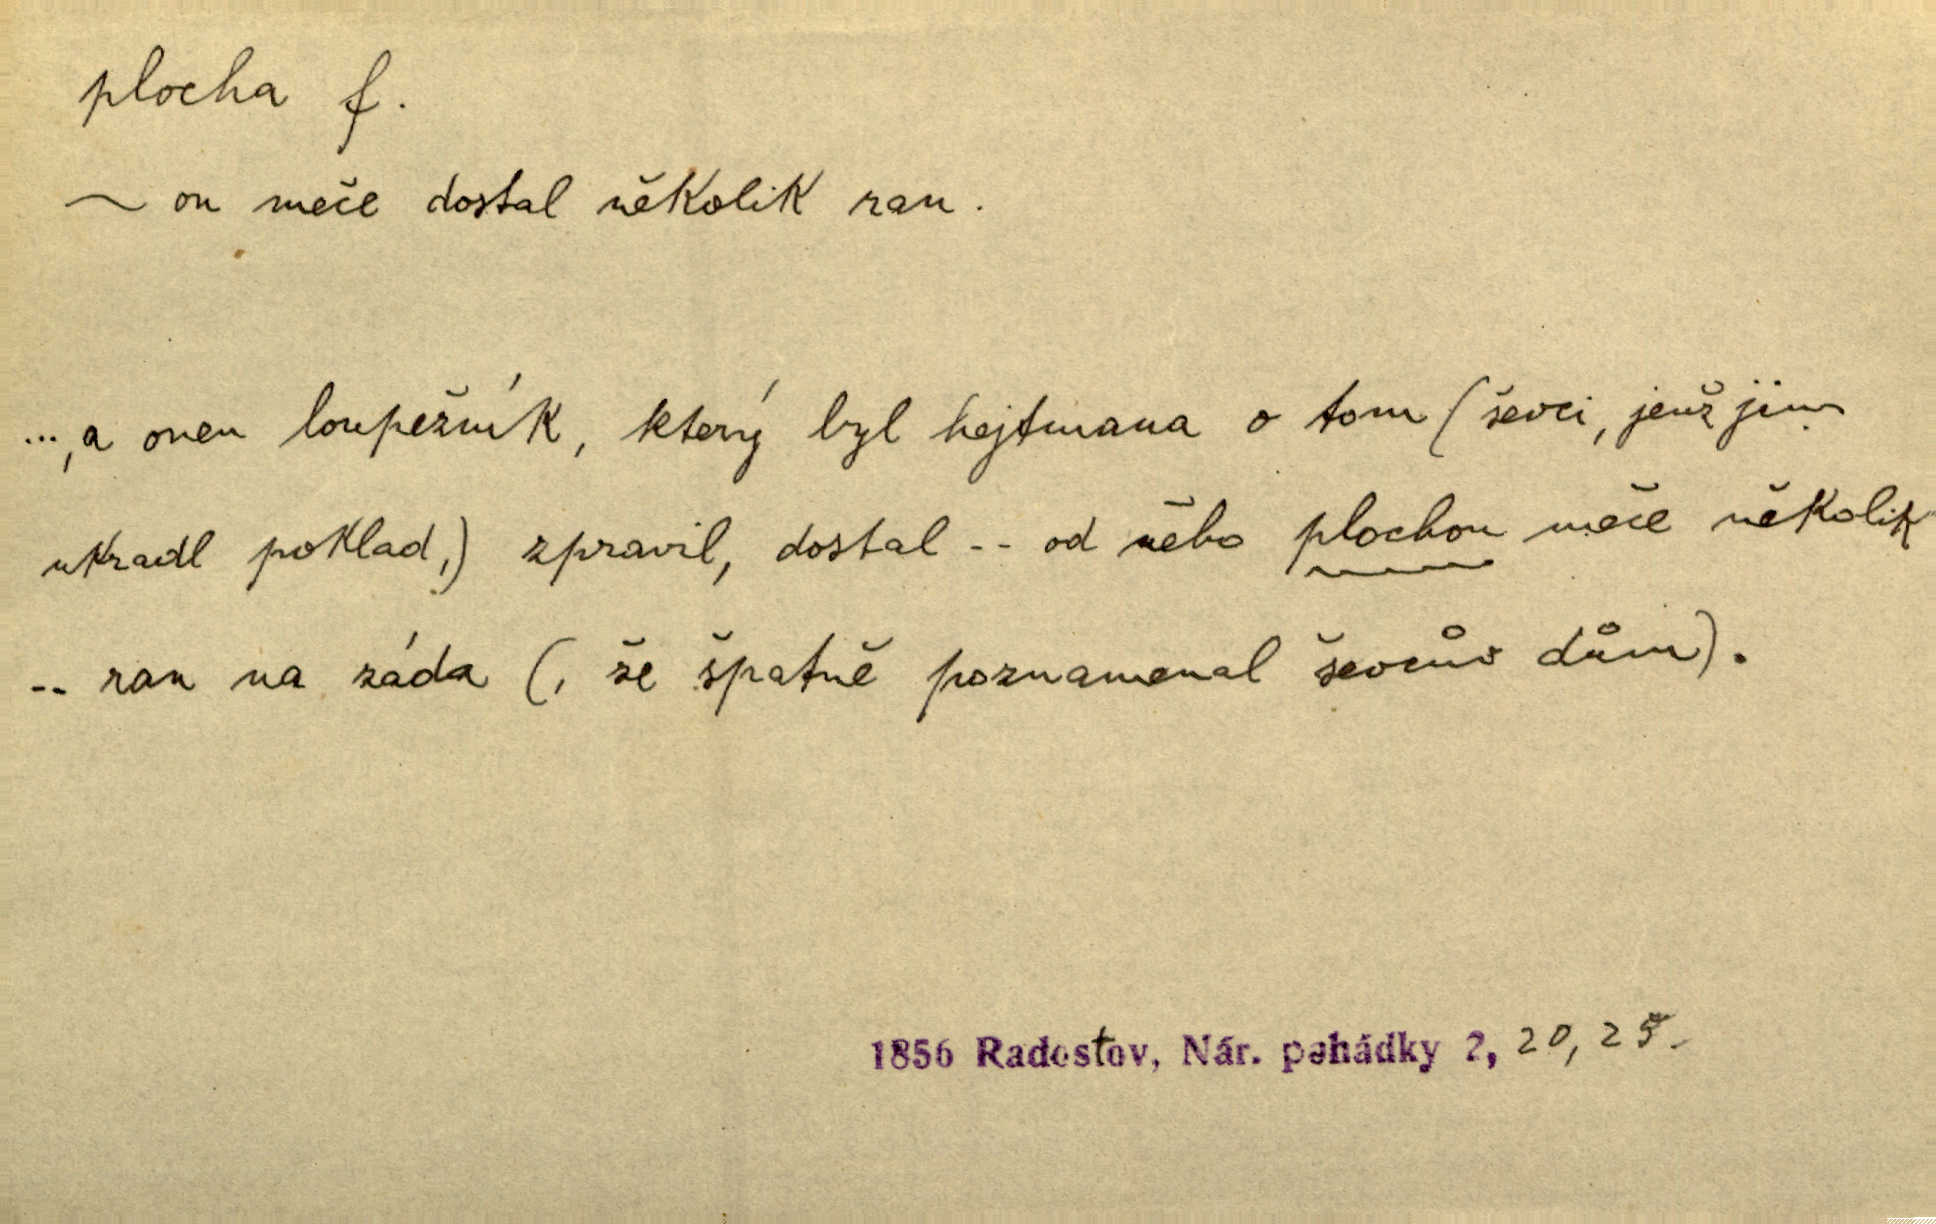 plocha f.
~ ou meče dostal několik ran.
..., a onen loupežník, který byl hejtmana o tom (ševci, jenž jim
ukradl poklad,) zpravil, dostal -- od něho plochou meče několik
-- ran na záda (, že špatně poznamenal ševcův dům).
1856 Radostov, Nár. pohádky 2, 20, 25.